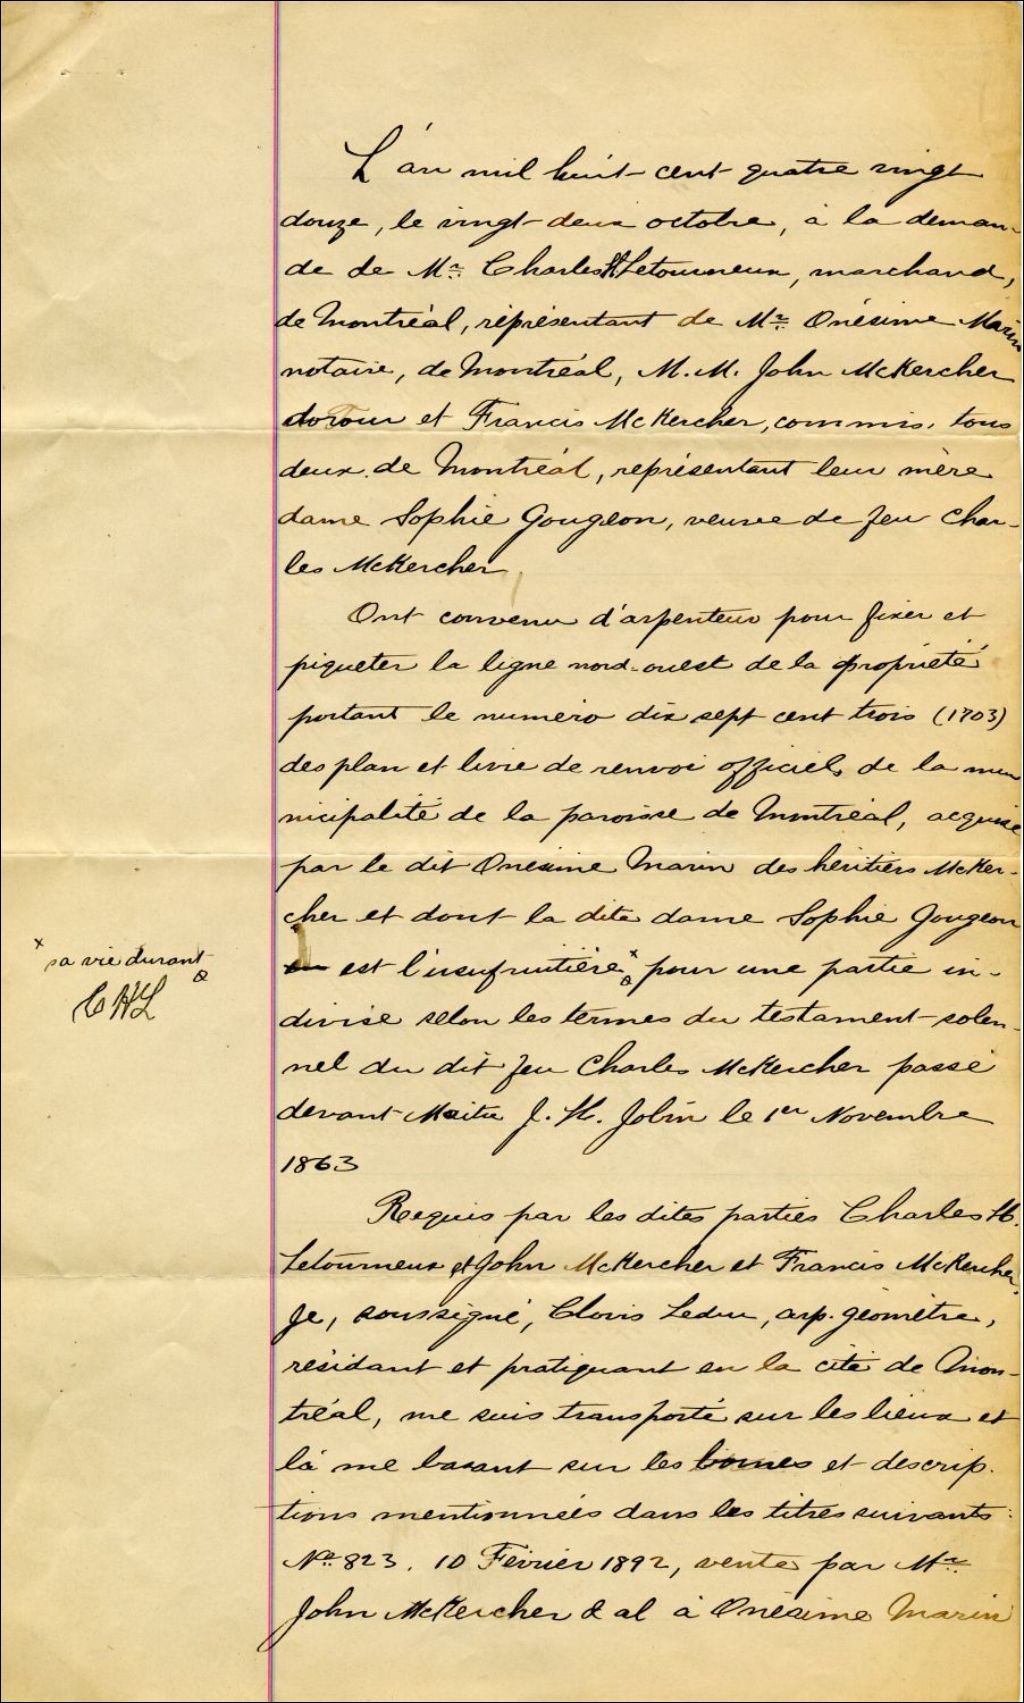 L'an mil huit cent quatre vingt
douze, le vingt deux octobre, à la deman-
de de Mr. Charles H. Letourneux, marchand,
de Montréal, réprésentant de Mr. Onésime Marin
notaire, de Montréal, M.M. John McKercher
doreur et Francis McKercher, commis, tous
deux de Montréal, représentant leur mère
dame Sophie Gougeon, veuve de feu Char-
les McKercher
Ont convenu d'arpenteur pour fixer et
piqueter la ligne nord-ouest de la propriété
portant le numéro dix sept cent trois (1703)
des plan et livre de renvoi officiels de la mu
nicipalité de la paroisse de Montréal, acquise
par le dit Onésime Marin des héritiers McKer-
cher et dont la dite dame Sophie Gougeon
est l'usufruitière x pour une partie in-
x sa vie durant
CHL
divise selon les termes du testament solen-
nel du dit feu Charles McKercher passé
devant Maitre J. H. Jobin le 1er Novembre
1863
Requis par les dites parties Charles H.
Letourneux et John McKercher et Francis McKercher,
Je, soussigné, Clovis Leduc, arp. géomètre,
résidant et pratiquant en la cité de Mon-
tréal, me suis transporté sur les lieux et
là me basant sur les bornes et descrip-
tions mentionnées dans les titres suivants:
No. 823. 10 Février 1892, vente par Mr.
John McKercher & al à Onésime Marin